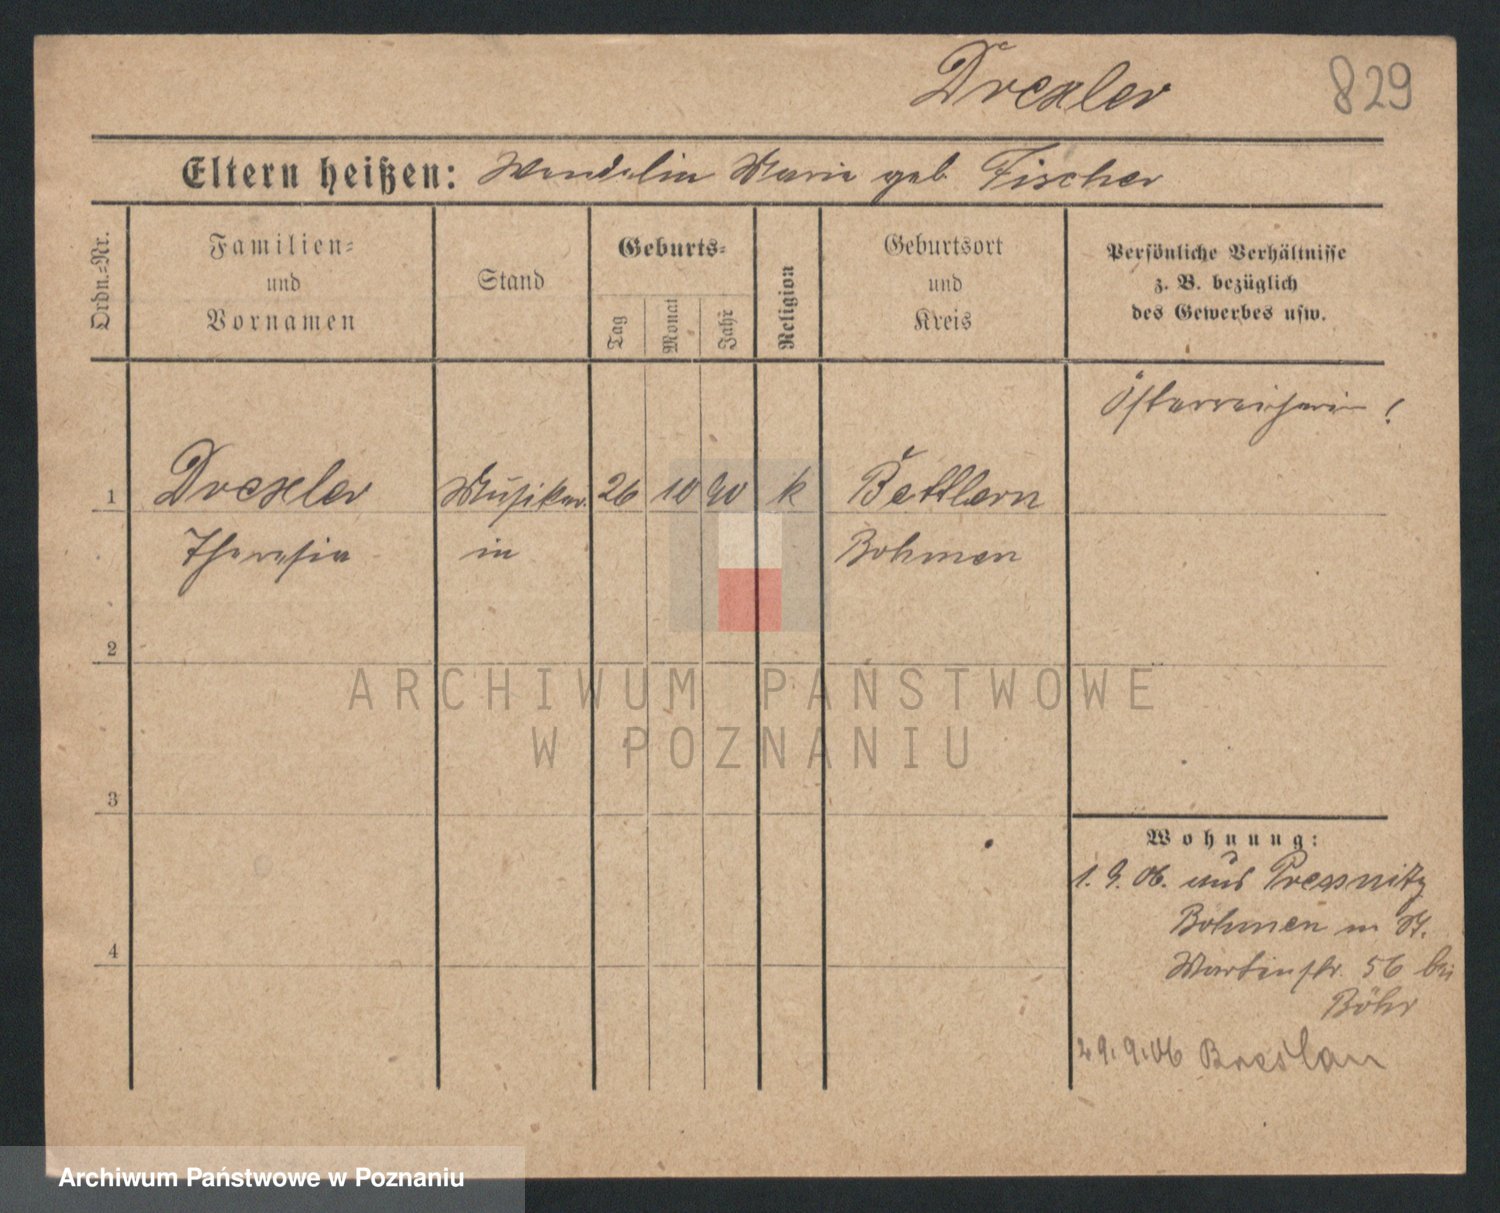 Drexler
829
Eltern heißen: Wendelin Marie geb Fischer
Ordn.-Nr.
Familien-
und
Vornamen
Stand
Geburts-
Tag
Monat
Jahr
Religion
Geburtsort
und
Kreis
Persönliche Verhältnisse
z. B. bezüglich
des Gewerbes usw.
Österreicherin !
1 Drexler Musiker 26 10 90 k Bettlern
Theresia in Bohmen
2
3
4
Wohnung:
1. 9. 06. aus Pressnitz
Bohmen n St.
Martinstr. 56 bei
Böhr
29. 9. 06 Breslau
ARCHIWUM PAŃSTWOWE
W POZNANIU
Archiwum Państwowe w Poznaniu